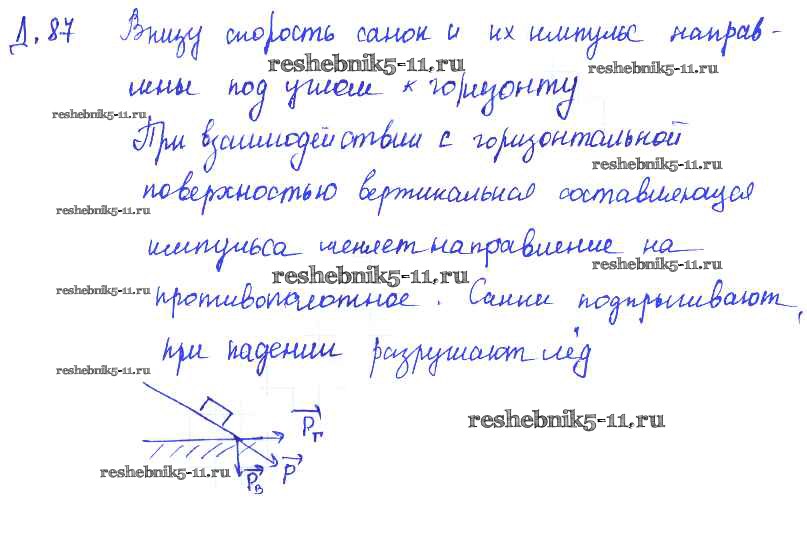 Д. 87 Внизу скорость санок и их импульс направ-
reshebnik5-11.ru
reshebnik5-11.ru
лены под углом к горизонту
reshebnik5-11.ru
При взаимодействии с горизонтальной
reshebnik5-11.ru
поверхностью вертикальная составляющая
reshebnik5-11.ru
импульса меняет направление на
reshebnik5-11.ru
reshebnik5-11.ru
reshebnik5-11.ru
противоположное. Санки подпрыгивают,
при падении разрушают лёд
reshebnik5-11.ru
Pг
reshebnik5-11.ru
reshebnik5-11.ru
Pв P